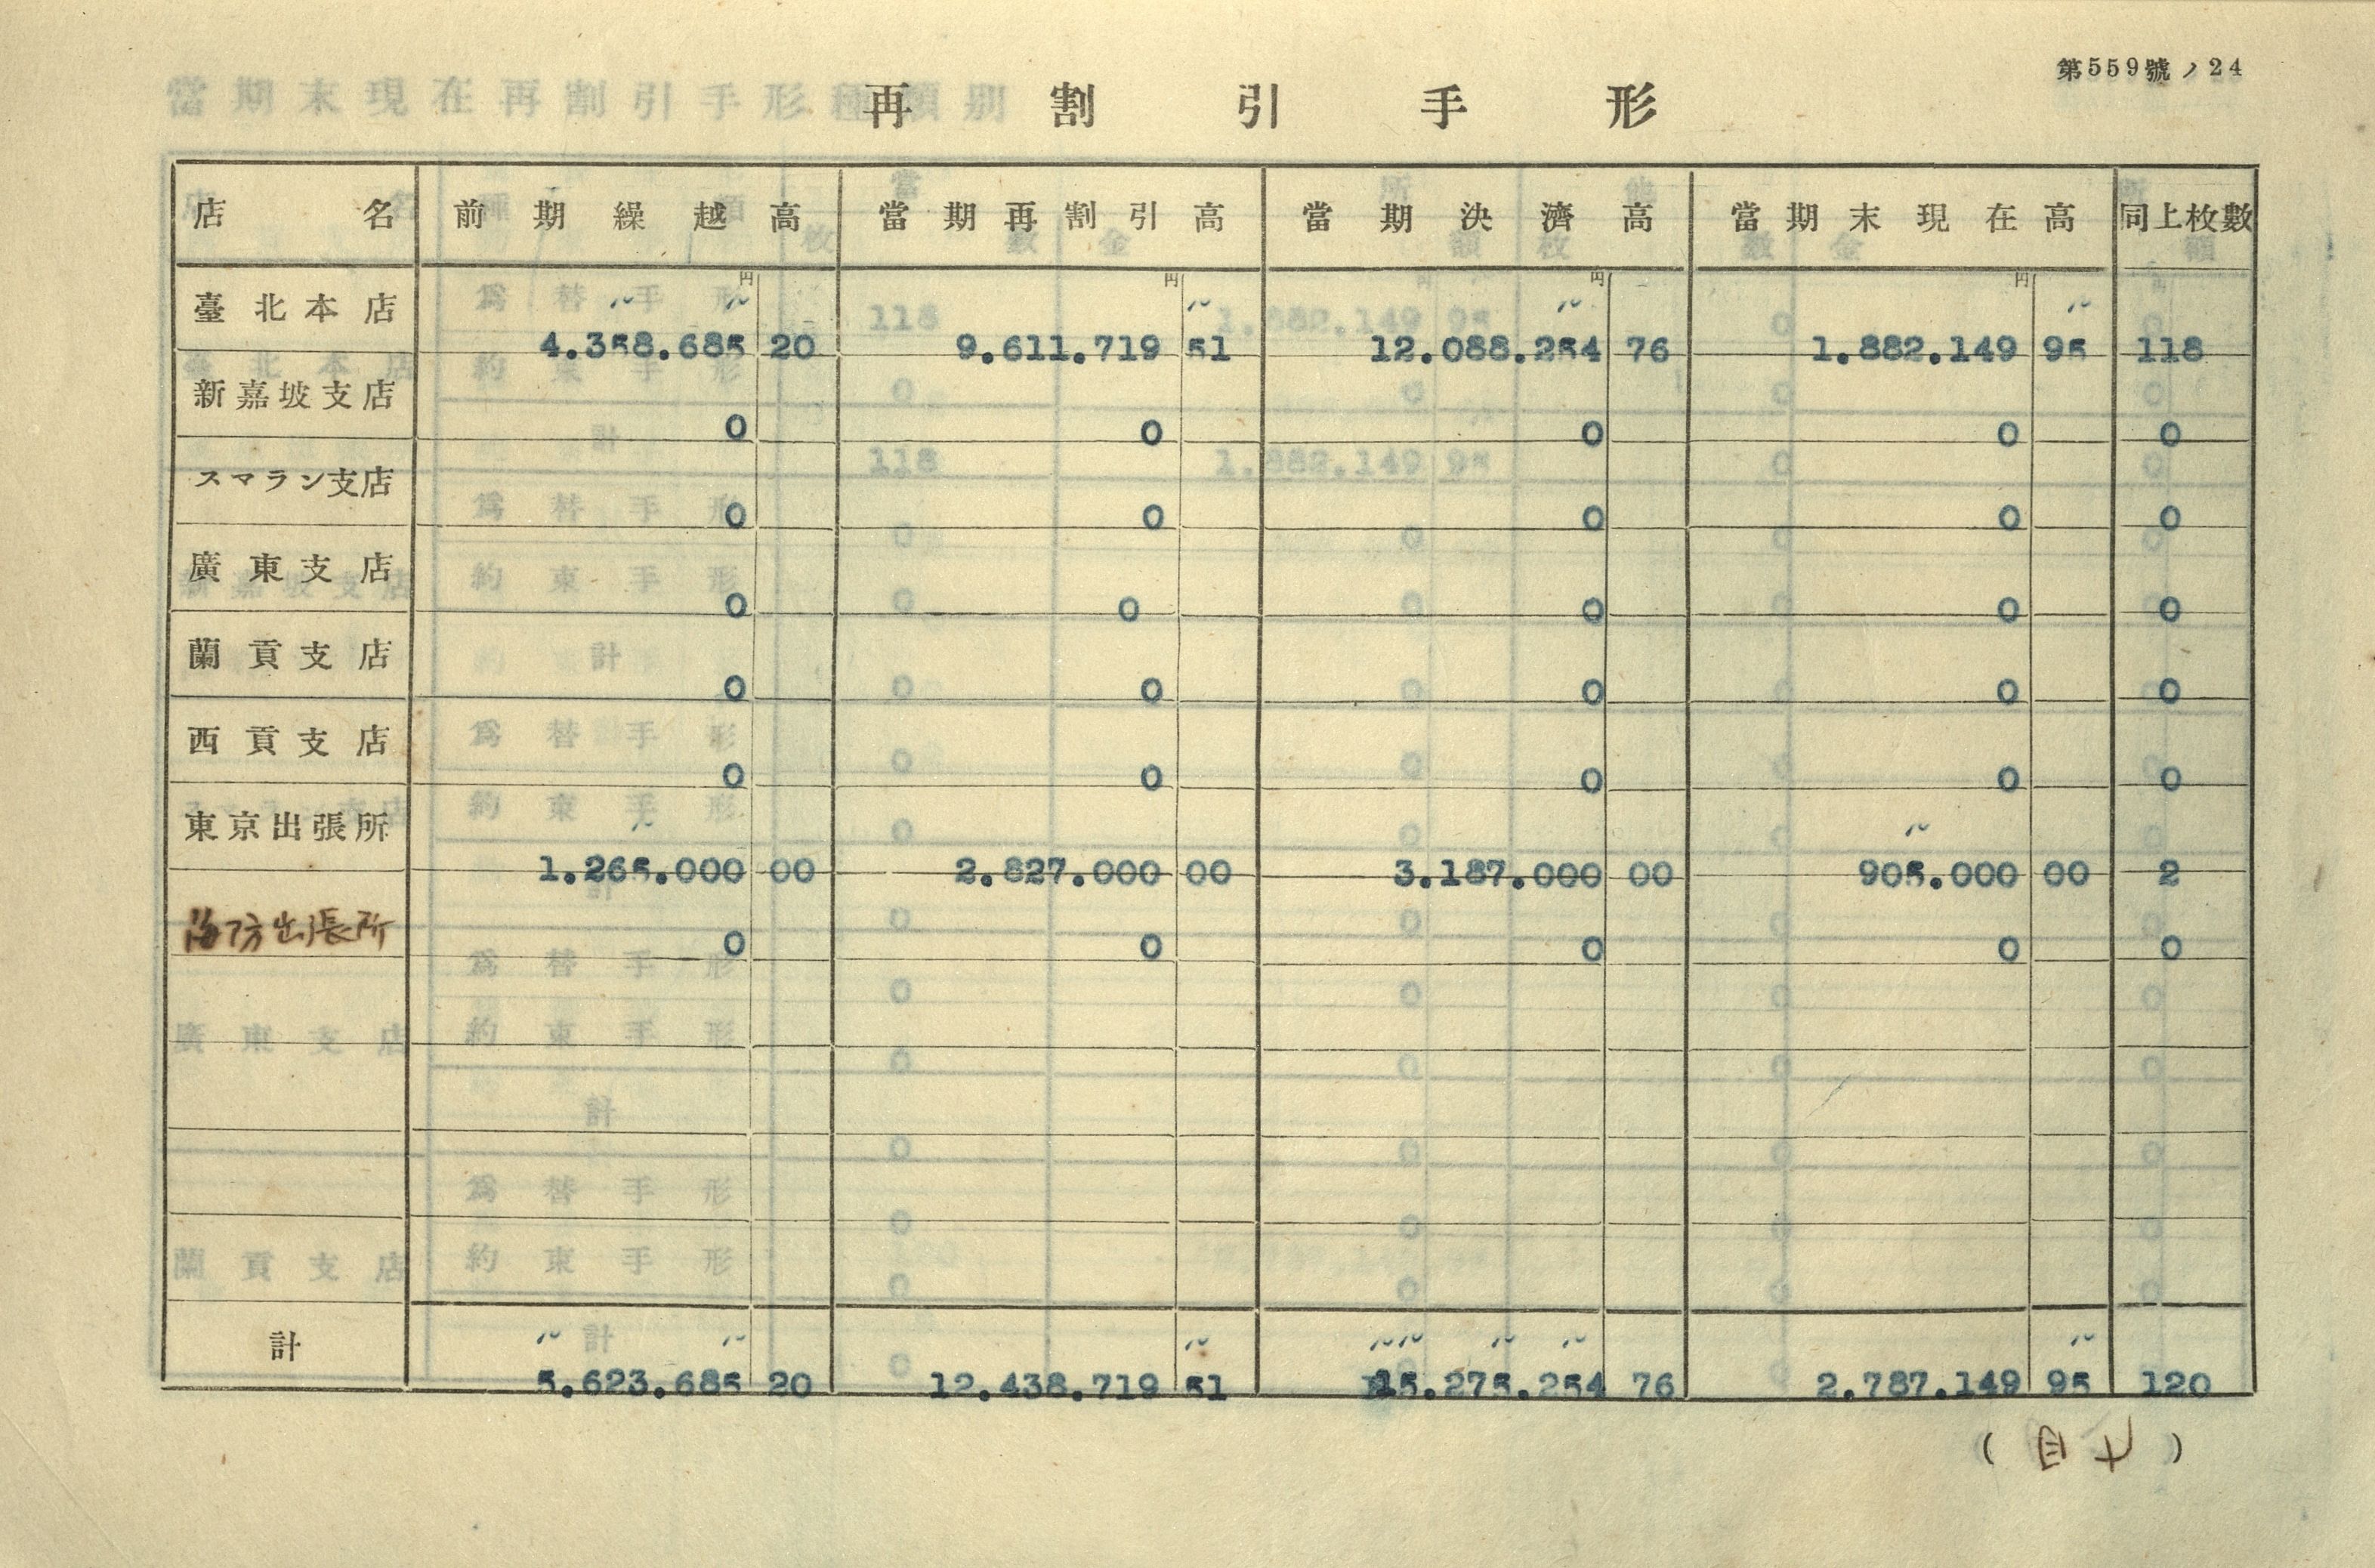 第559號ノ24
再割引手形
店名 前期繰越高 當期再割引高 當期決濟高 當期末現在高 同上枚數
円 円 円 円
臺北本店 4.358.685 20 9.611.719 51 12.088.254 76 1.882.149 95 118
新嘉坡支店 0 0 0 0 0
スマラン支店 0 0 0 0 0
廣東支店 0 0 0 0 0
蘭貢支店 0 0 0 0 0
西貢支店 0 0 0 0 0
東京出張所 1.265.000 00 2.827.000 00 3.187.000 00 905.000 00 2
海防出張所 0 0 0 0 0
計 5.623.685 20 12.438.719 51 15.275.254 76 2.787.149 95 120